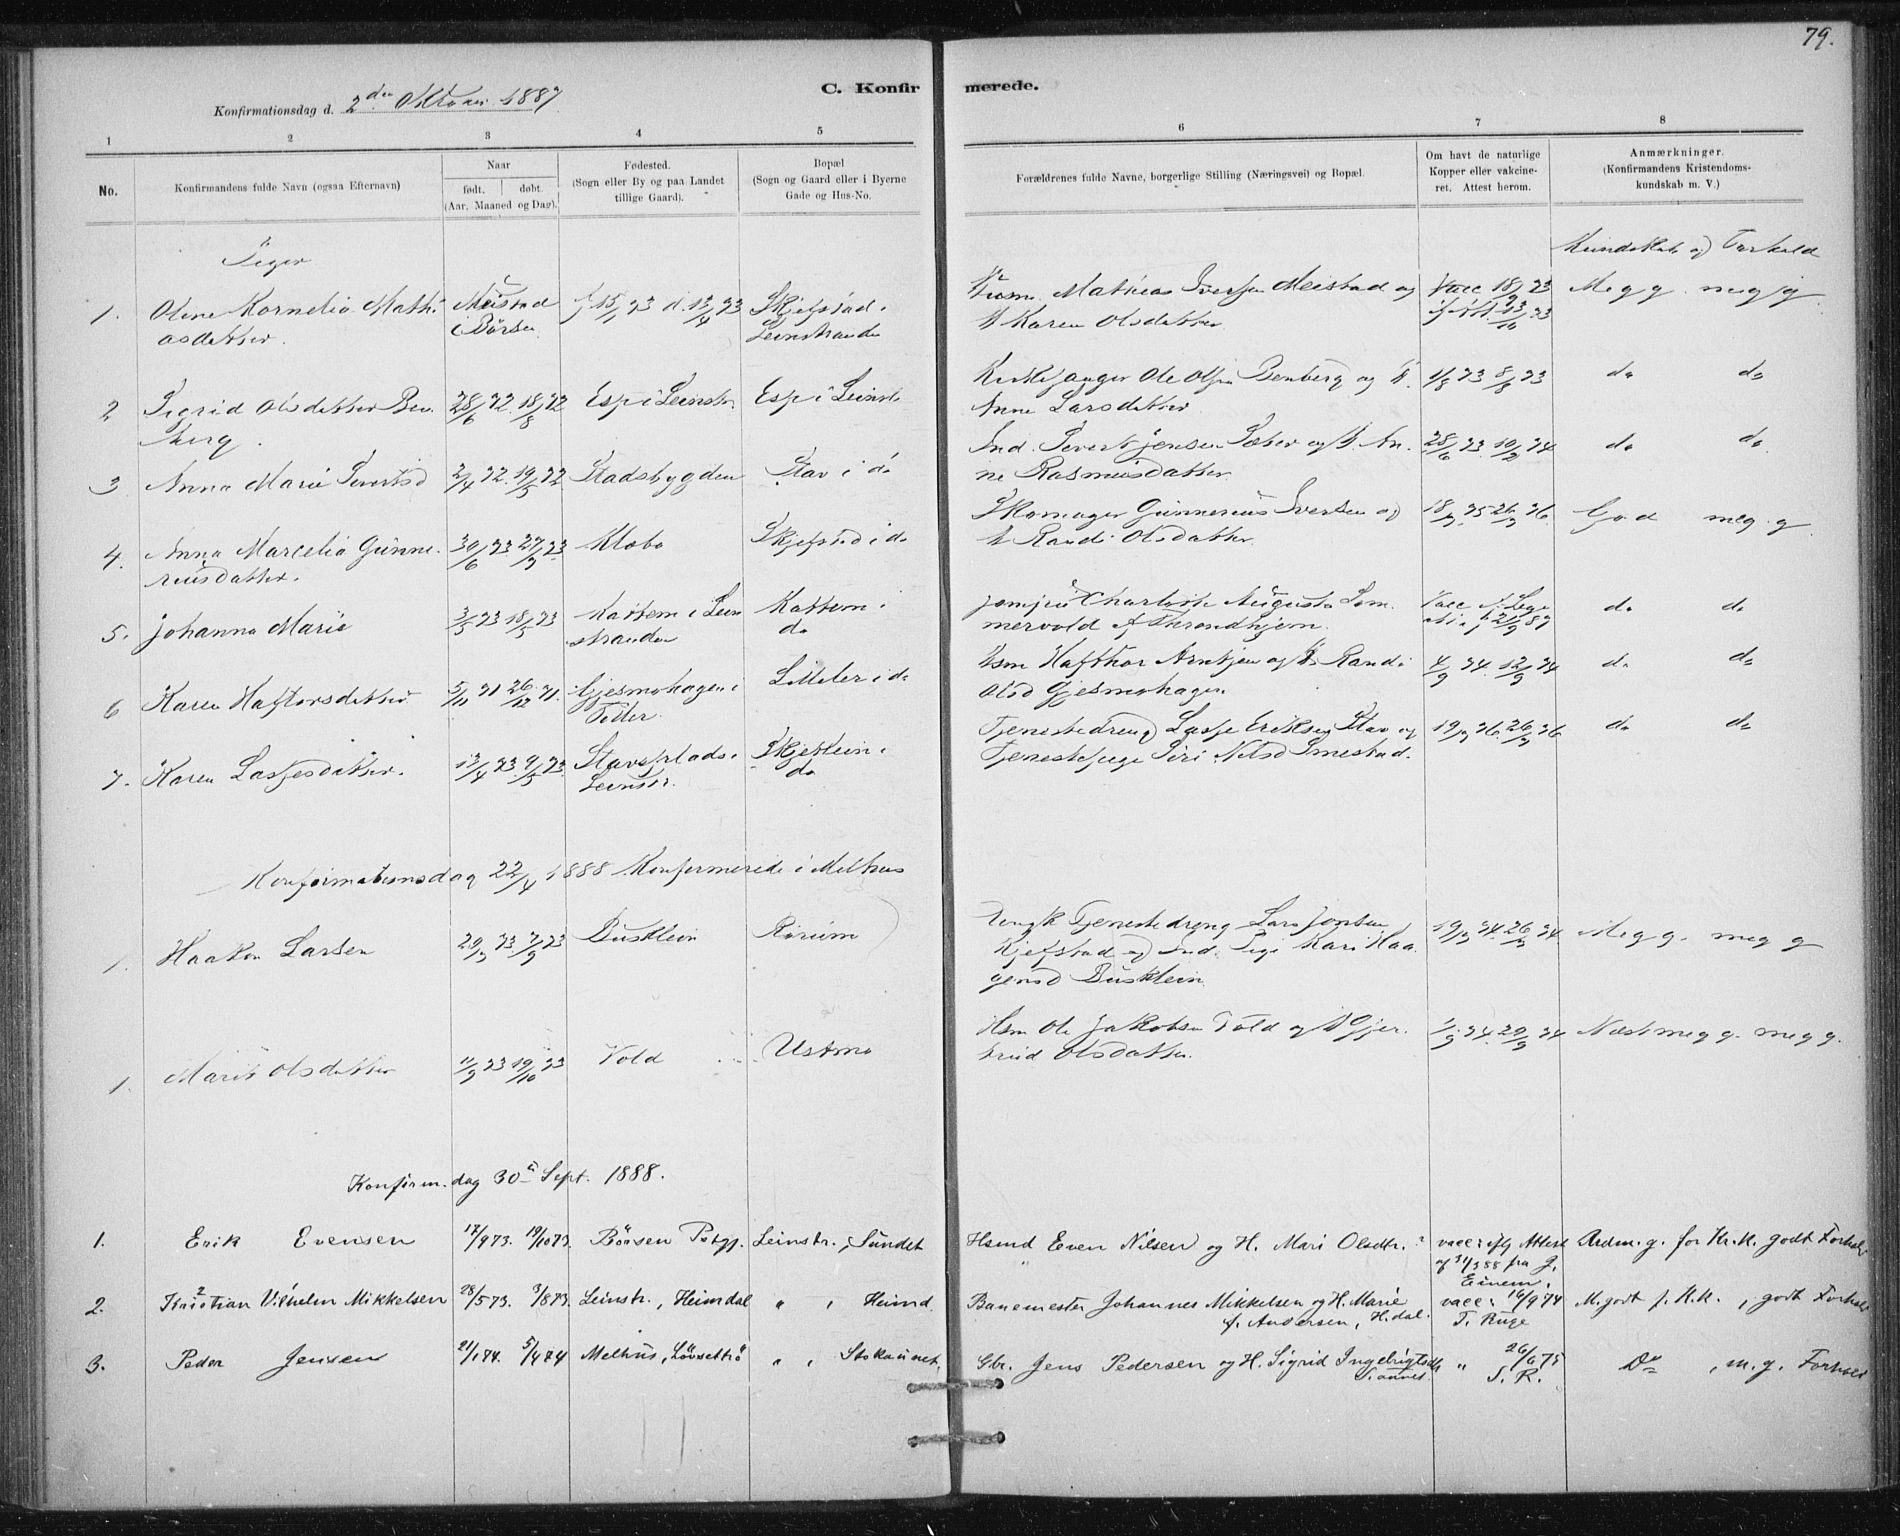 79.
C. Konfirmerede.
Konfirmationsdag d. 2den Oktober 1887
1 2 3 4 5 6 7 8
No.
Konfirmandens fulde Navn (ogsaa Efternavn)
Naar
født. døbt.
(Aar. Maaned og Dag).
Fødested.
(Sogn eller By og paa Landet
tillige Gaard).
Bopæl
(Sogn og Gaard eller i Byerne
Gade og Hus-No.
Forældrenes fulde Navne, borgerlige Stilling (Næringsvei) og Bopæl.
Om havt de naturlige
Kopper eller vakcine-
ret. Attest herom.
Anmærkninger.
(Konfirmandens Kristendoms-
kundskab m. V.)
Piger
Kundskab og Forhold
1. Oline Kornelia Mathi- Meistad f 15/1 73 d. 13/4 73 Skjefstad i Husm. Mathias Iversen Meistad og Vacc 18/9 73 Meg g. meg g
asdatter. i Børsen Leinstranden H Karen Olsdatter
2 Sigrid Olsdatter Ben- 28/6 72. 18/8 72 Esp i Leinstr. Esp i Leinst. Kirkesanger Ole Olsen Benberg og H. 1/8 73 8/8 73 do do
berg. Anne Larsdatter
3. Anna Marie Sivertsd 2/4 72. 19/5 72 Stadsbygden Stav i do Ind. Sivert Jensen Sæter og H. An- 28/6 73. 10/2 74 do do
ne Rasmusdatter
4. Anna Marcelia Gunne- 30/6 73 27/7 73 Klæbo Skjefstad i do Skomager Gunnerius Iversen og 18/9 75 26/9 76. God meg. g.
riusdatter. H Randi Olsdatter
5. Johanna Marie 3/5 73 18/5 73 Kattem i Lein- Kattem i Jomfru Charlotte Augusta Sem- Vacc. do do
stranden do mervold af Throndhjem. 21/9 87
6 Karen Haftorsdatter 5/11 71 26/12 71. Gjesmohagen i Leeler i do Hsm Hafthor Arntsen og H. Randi 4/9 74. 12/9 74 do do
Tiller. Olsd Gjesmohagen
7. Karen Lassesdatter. 13/4 73. 9/5 73 Stavsplads i Skjetlein i Tjenestedreng Lasse Eriksen Stav og 19/9 76. 26/9 76 do do
Leinstr. do Tjenestepige Siri Nilsd Smestad.
Konfirmationsdag 22/4 1888 Konfirmerede i Melhus
1. Haakon Larsen 20/7 73. 7/9 73 Busklein Rørum Ungk Tjenestedreng Lars Jonsen 19/9 74. 26/9 74 Meg g. meg g
Kjefstad og Ind. Pige Kari Haa-
gensd Busklein
1. Marit Olsdatter 11/9 73 19/10 73 Vold Ustmo Hsm Ole Jakobsen Vold og H Gjer- 1/9 74. 20/9 74 Næst meg g. meg g.
trud Olsdatter.
Konfirm.dag 30te Sept. 1888.
1. Erik Evensen 17/9 73. 19/10 73. Börsen Pstgj. Leinstr., Sundet Hsmd Even Nilsen og H. Mari Olsdtr. vacc: iflg Attest Audm. g. for Kr.k. godt Forhold
af 31/3 88 fra J.
Einem.
2. Kristian Vilhelm Mikkelsen 28/5 73. 3/8 73. Leinstr., Heimdal " , Heimd. Banemester Johannes Mikkelsen og H. Marie vacc: 16/9 74 M. godt f. K.k. , godt Forhold
f. Andersen, H.dal. T. Ruge
3. Peder Jensen 21/1 74. 5/4 74 Melhus, Lövsetträ " , Stokaunet. Gbr. Jens Pedersen og H. Sigrid Ingebrigtsdtr " 26/6 75 Do , m. g. Forhold
S. aunet. S. R.